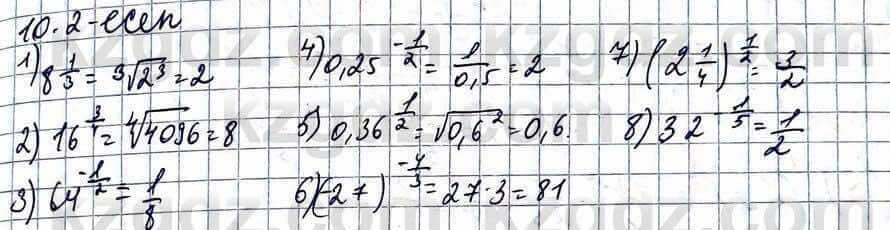 10.2-есеп
1) 8^(1/3) = ∛(2³) = 2
2) 16^(3/4) = ∜4096 = 8
3) 64^(-1/2) = 1/8
4) 0,25^(-1/2) = 1/0,5 = 2
5) 0,36^(1/2) = √(0,6²) = 0,6.
6) (-27)^(-4/3) = 27·3 = 81
7) (2 1/4)^(1/2) = 3/2
8) 32^(-1/5) = 1/2